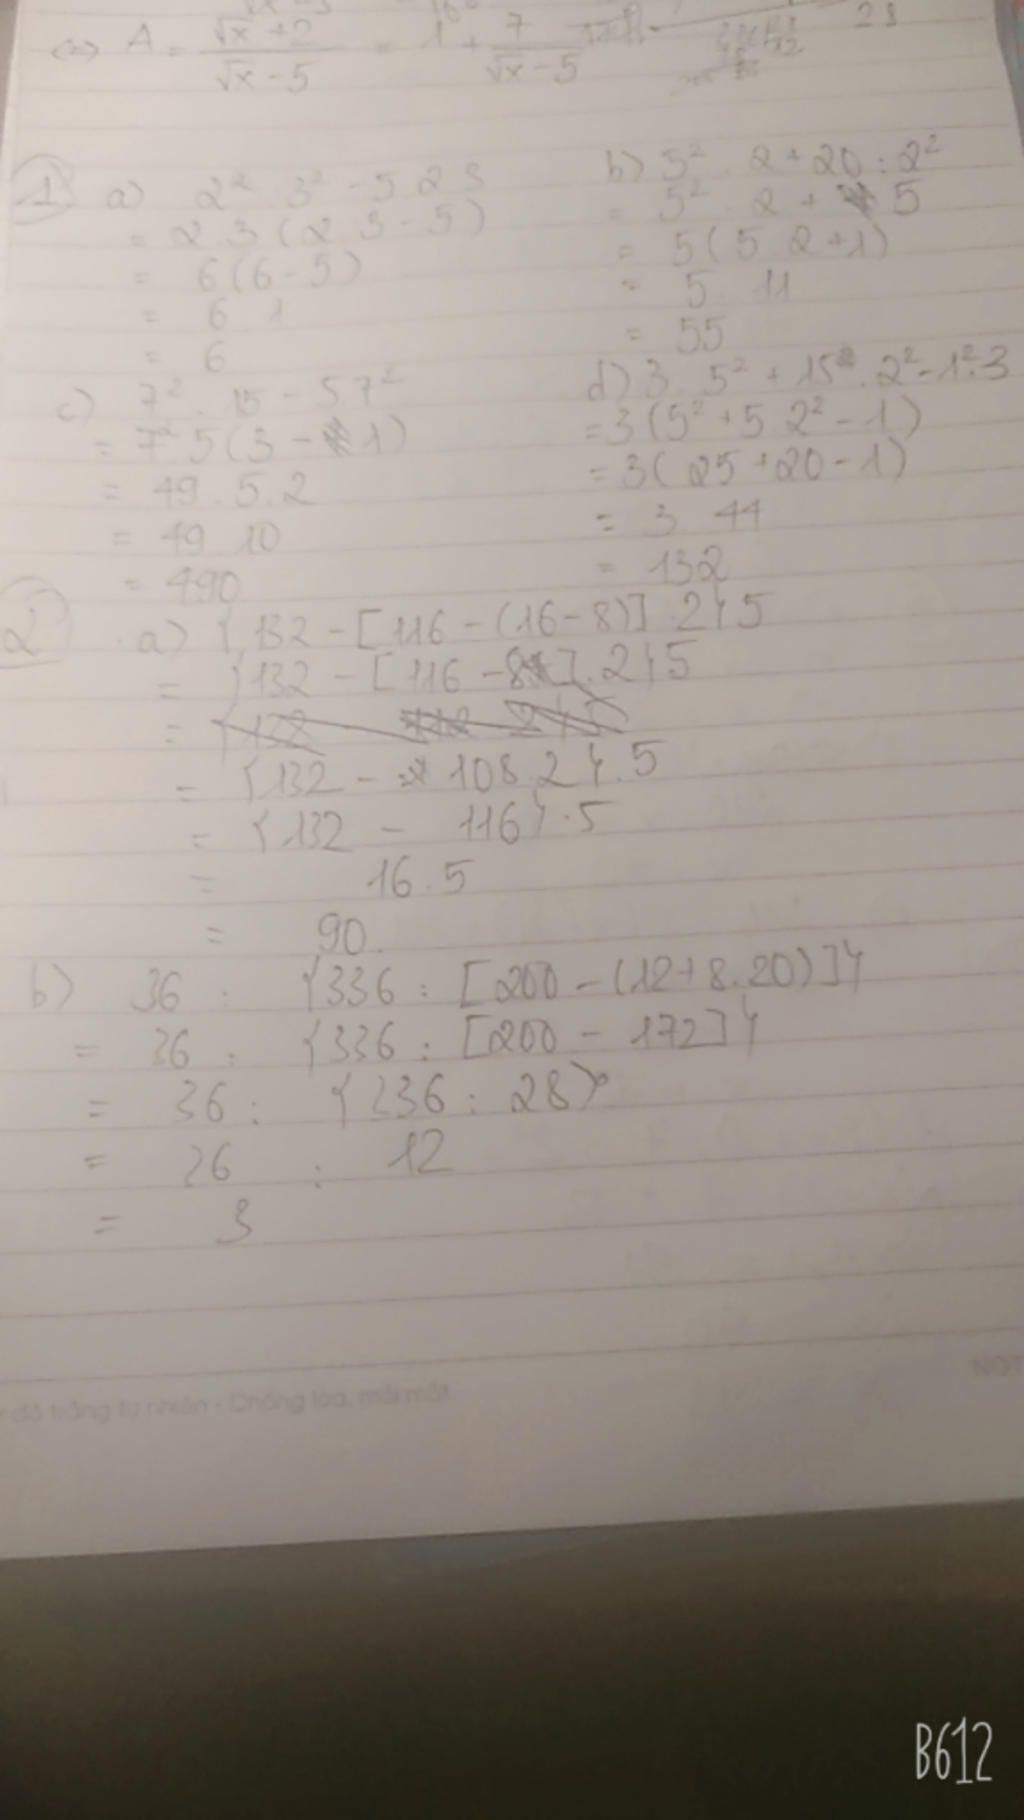 (=) A = √x + 2 / √x - 5 = 1 + 7 / √x - 5
23
1. a) 2² 3² - 5 2 3
= 2 3 (2 3 - 5)
= 6 (6 - 5)
= 6 1
= 6
b) 5² . 2 + 20 : 2²
= 5² . 2 + 5
= 5 (5 2 + 1)
= 5 11
= 55
c) 7² . 15 - 5 7²
= 7² 5 (3 - 1)
= 49 . 5 . 2
= 49 10
= 490
d) 3 5² + 15 . 2² - 1² . 3
= 3 (5² + 5 2² - 1)
= 3 (25 + 20 - 1)
= 3 44
= 132
2 a) {132 - [116 - (16 - 8)] . 2} 5
= {132 - [116 - 8] . 2} 5
= {132 - 108 2} . 5
= {132 - 116} . 5
= 16 . 5
= 90.
b) 36 : {336 : [200 - (12 + 8 . 20)]}
= 36 : {336 : [200 - 172]}
= 36 : {336 : 28}
= 36 : 12
= 3
độ trắng tự nhiên - Chống lóa, mỏi mắt
NOT
B612